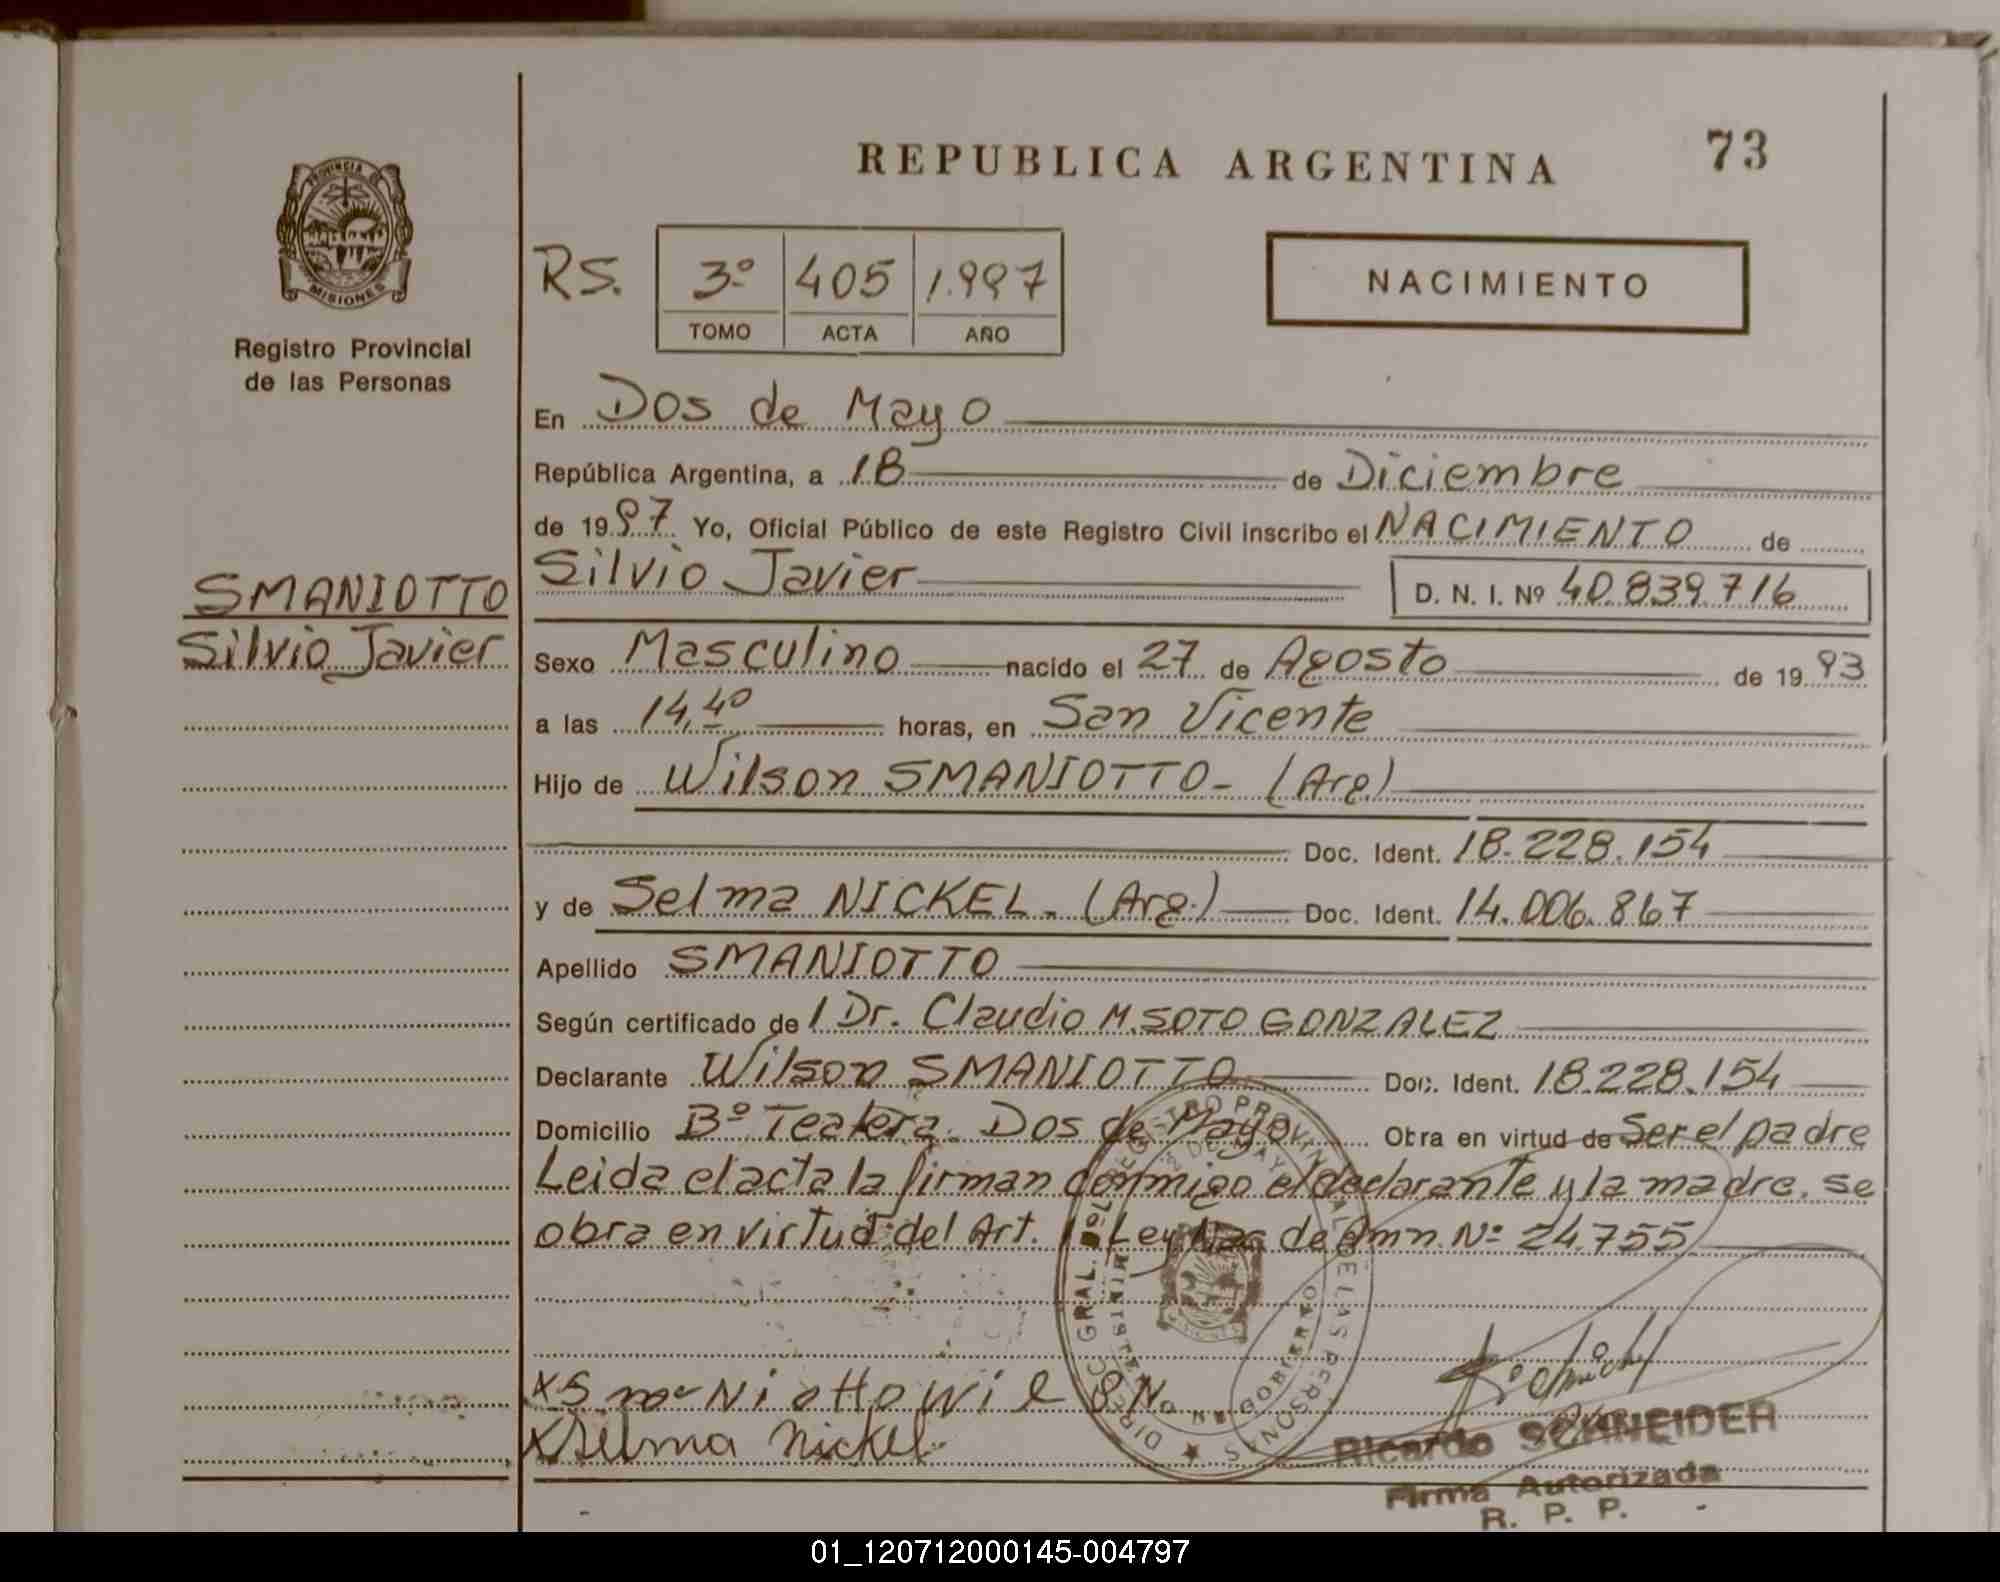 REPUBLICA ARGENTINA
73
PROVINCIA DE
MISIONES
Registro Provincial
de las Personas
RS.
3º 405 1.997
TOMO ACTA AÑO
NACIMIENTO
En Dos de Mayo
República Argentina, a 18 de Diciembre
de 1997 Yo, Oficial Público de este Registro Civil inscribo el NACIMIENTO de
SMANIOTTO
Silvio Javier
Silvio Javier
D. N. I. Nº 40.839.716
Sexo Masculino nacido el 27 de Agosto de 1993
a las 14,40 horas, en San Vicente
Hijo de Wilson SMANIOTTO- (Arg)
Doc. Ident. 18.228.154
y de Selma NICKEL. (Arg.) Doc. Ident. 14.006.867
Apellido SMANIOTTO
Según certificado de l Dr. Claudio M. SOTO GONZALEZ
Declarante Wilson SMANIOTTO Doc. Ident. 18.228.154
Domicilio Bº Tealera. Dos de Mayo. Obra en virtud de Ser el padre
Leida el acta la firman conmigo el declarante y la madre. se
obra en virtud del Art. 1º Ley Nac de Amn. Nº 24.755
DIREC. GRAL. DEL REGISTRO PROVINCIAL DE LAS PERSONAS
MINISTERIO DE GOBIERNO
2 DE MAYO
MISIONES
x Smaniotto Wilson
x Selma Nickel
Ricardo SCHNEIDER
Firma Autorizada
R. P. P.
01_120712000145-004797